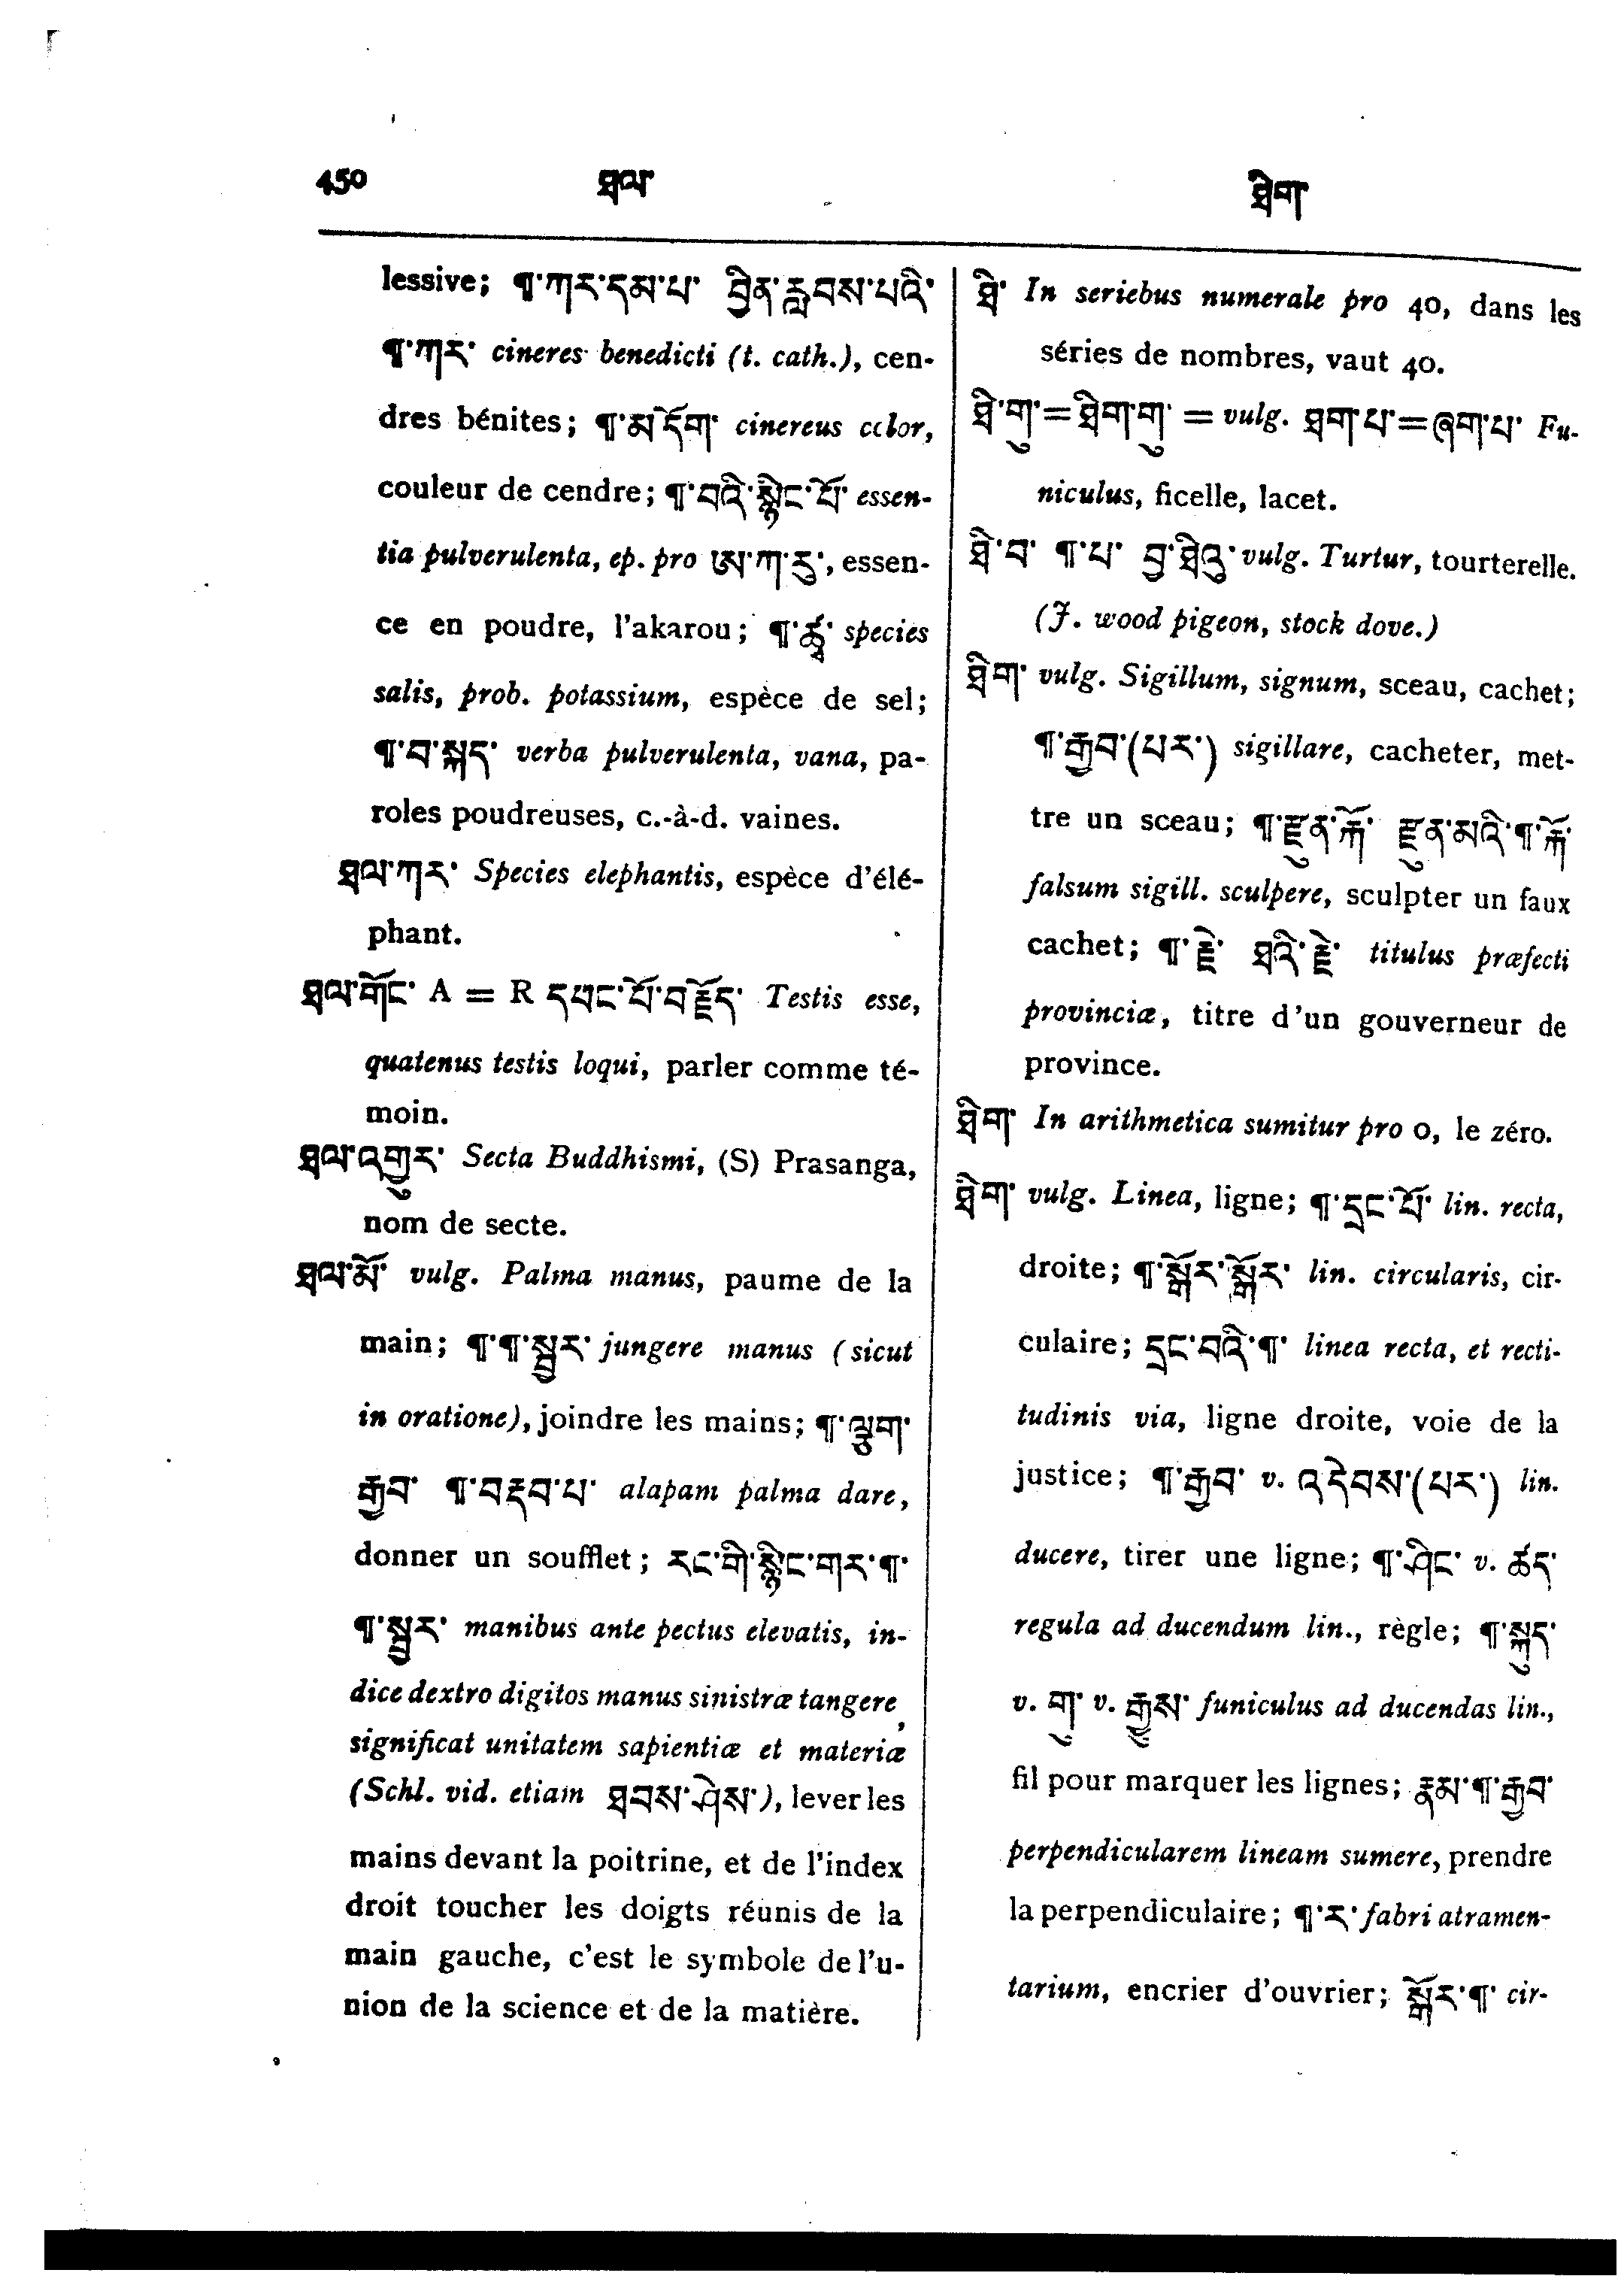 450 ཐལ་ ཐིག་
lessive; ¶་ཀར་དམ་པ་ བྱིན་རླབས་པའི་
¶་ཀར་ cineres benedicti (t. cath.), cen-
dres bénites; ¶་མ་དོག་ cinereus color,
couleur de cendre; ¶་བའི་སྙིང་པོ་ essen-
tia pulverulenta, ep. pro ཨ་ཀ་རུ་, essen-
ce en poudre, l'akarou; ¶་ཚྭ་ species
salis, prob. potassium, espèce de sel;
¶་བ་སྐད་ verba pulverulenta, vana, pa-
roles poudreuses, c.-à-d. vaines.
ཐལ་ཀར་ Species elephantis, espèce d'élé-
phant.
ཐལ་གོང་ A = R དཔང་པོ་བརྗོད་ Testis esse,
quatenus testis loqui, parler comme té-
moin.
ཐལ་འགྱུར་ Secta Buddhismi, (S) Prasanga,
nom de secte.
ཐལ་མོ་ vulg. Palma manus, paume de la
main; ¶་¶་སྦྱར་ jungere manus (sicut
in oratione), joindre les mains; ¶་ལྕག་
རྒྱབ་ ¶་བརྡབ་པ་ alapam palma dare,
donner un soufflet; རང་གི་སྙིང་གར་¶་
¶་སྦྱར་ manibus ante pectus elevatis, in-
dice dextro digitos manus sinistræ tangere,
significat unitatem sapientiæ et materiæ
(Schl. vid. etiam ཐབས་ཤེས་), lever les
mains devant la poitrine, et de l'index
droit toucher les doigts réunis de la
main gauche, c'est le symbole de l'u-
nion de la science et de la matière.
ཐི་ In seriebus numerale pro 40, dans les
séries de nombres, vaut 40.
ཐི་གུ་ = ཐིག་གུ་ = vulg. ཐག་པ་ = ཞག་པ་ Fu-
niculus, ficelle, lacet.
ཐི་བ་ ¶་པ་ བྱ་ཐིའུ་ vulg. Turtur, tourterelle.
(J. wood pigeon, stock dove.)
ཐིག་ vulg. Sigillum, signum, sceau, cachet;
¶་རྒྱབ་(པར་) sigillare, cacheter, met-
tre un sceau; ¶་རྫུན་རྐོ་ རྫུན་མའི་¶་རྐོ་
falsum sigill. sculpere, sculpter un faux
cachet; ¶་རྗེ་ ཐའི་རྗེ་ titulus præfecti
provinciæ, titre d'un gouverneur de
province.
ཐིག་ In arithmetica sumitur pro 0, le zéro.
ཐིག་ vulg. Linea, ligne; ¶་དྲང་པོ་ lin. recta,
droite; ¶་སྒོར་སྒོར་ lin. circularis, cir-
culaire; དྲང་བའི་¶་ linea recta, et recti-
tudinis via, ligne droite, voie de la
justice; ¶་རྒྱབ་ v. འདེབས་(པར་) lin.
ducere, tirer une ligne; ¶་ཤིང་ v. ཚད་
regula ad ducendum lin., règle; ¶་སྐུད་
v. གུ་ v. རྒྱུས་ funiculus ad ducendas lin.,
fil pour marquer les lignes; རྣམ་¶་རྒྱབ་
perpendicularem lineam sumere, prendre
la perpendiculaire; ¶་ར་ fabri atramen-
tarium, encrier d'ouvrier; སྒོར་¶་ cir-